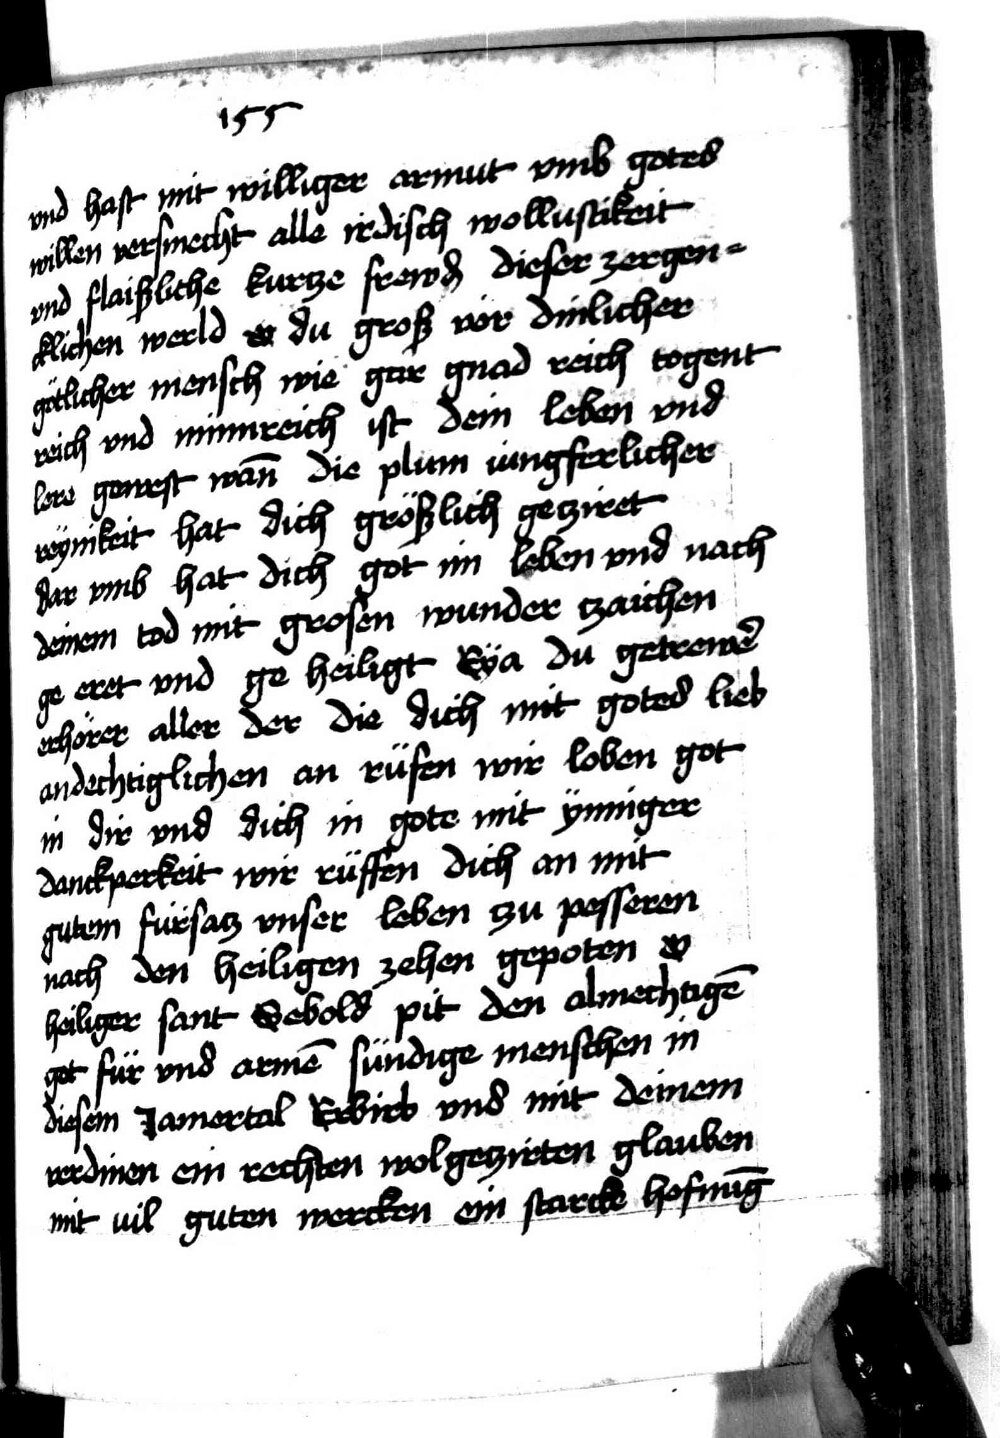 155
vnd hast mit williger armut vmb gotes
willen versmecht alle irdisch wollustikeit
vnd flaißliche kurtze frewd dieser zergen-
cklichen werld o du groß vor dinlicher
götlicher mensch wie gar gnad reich togent
reich vnd minnreich ist dein leben vnd
lere gewest wan̄ die plum iungferlicher
reÿnikeit hat dich größlich getziret
dar vmb hat dich got im leben vnd nach
deinem tod mit grosen wunder tzaichen
ge eret vnd ge heiligt Eÿa du getrewer
erhörer aller der die dich mit gotes lieb
andechtiglichen an rüfen wir loben got
in dir vnd dich in gote mit ÿnniger
danckperkeit wir rüffen dich an mit
gutem fürsatz vnser leben tzu pesseren
nach den heiligen zehen gepoten o
heiliger sant Sebold pit den almechtigē
got für vns armē sündige menschen in
diesem Jamertal Erbirb vns mit deinem
verdinen ein rechten wolgetzirten glauben
mit uil guten wercken ein starcke hofnūg